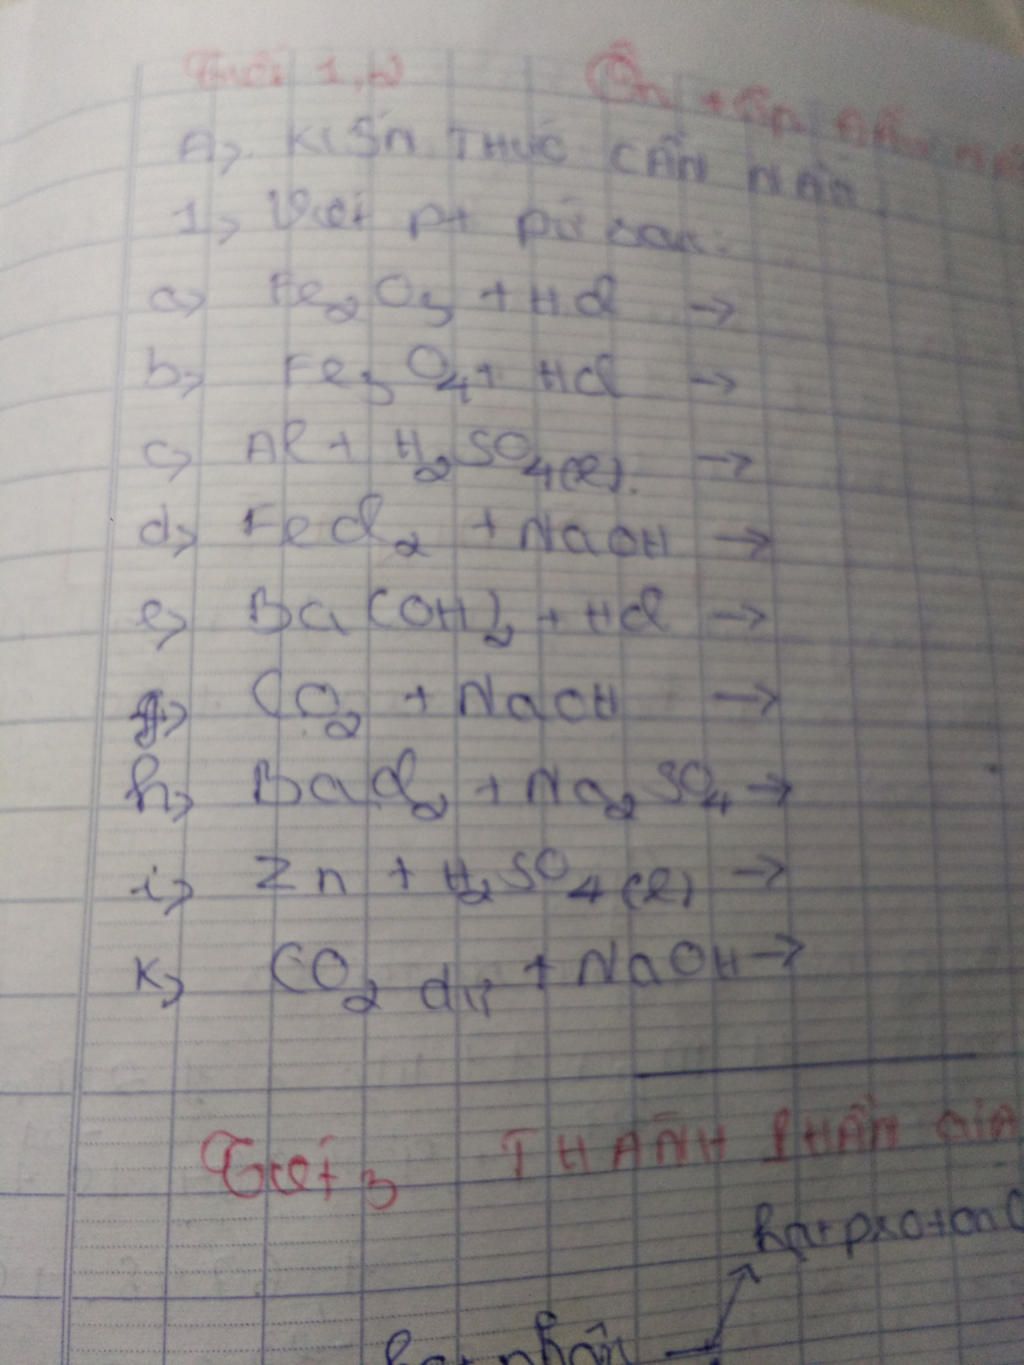 Tiết 1,2 Ôn tập đầu
A, KIẾN THỨC CẦN NẮM
1, Viết pt pứ sau:
a, Fe2O3 + HCl →
b, Fe3O4 + HCl →
c, Al + H2SO4(l). →
d, FeCl2 + NaOH →
e, Ba(OH)2 + HCl →
g, CO2 + NaOH →
h, BaCl2 + Na2SO4 →
i, Zn + H2SO4(l) →
K, CO2 dư + NaOH →
Tiết 3 THÀNH PHẦN
hạt proton
hạt nhân →